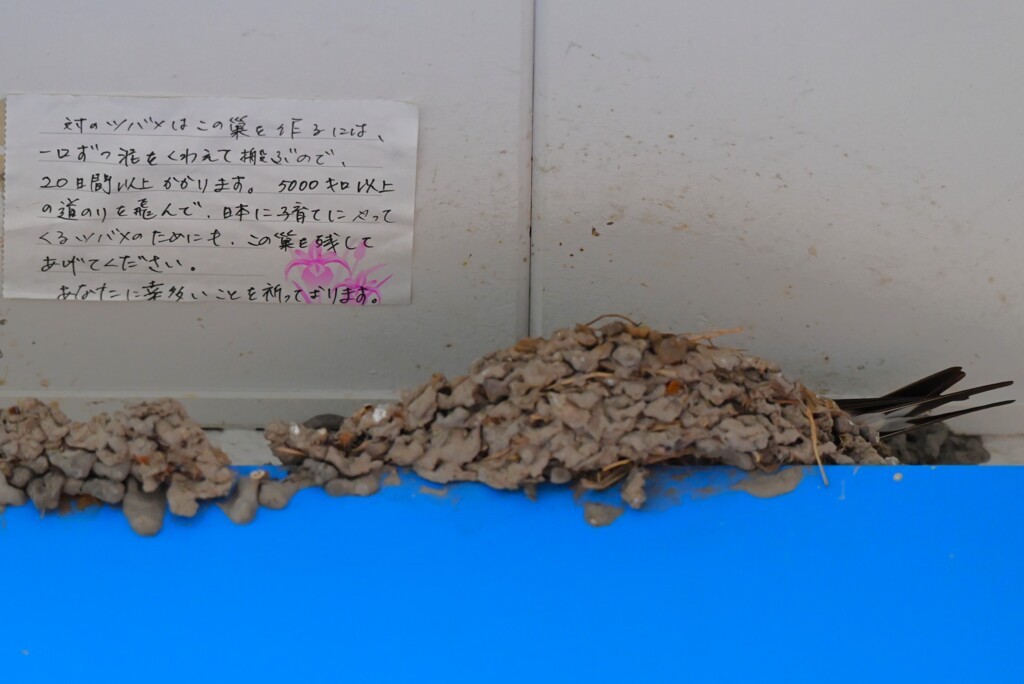 対のツバメはこの巣を作るには、
一口ずつ泥をくわえて搬ぶので、
20日間以上かかります。 5000キロ以上
の道のりを飛んで、日本に子育てにやって
くるツバメのためにも、この巣を残して
あげてください。
あなたに幸多いことを祈っております。